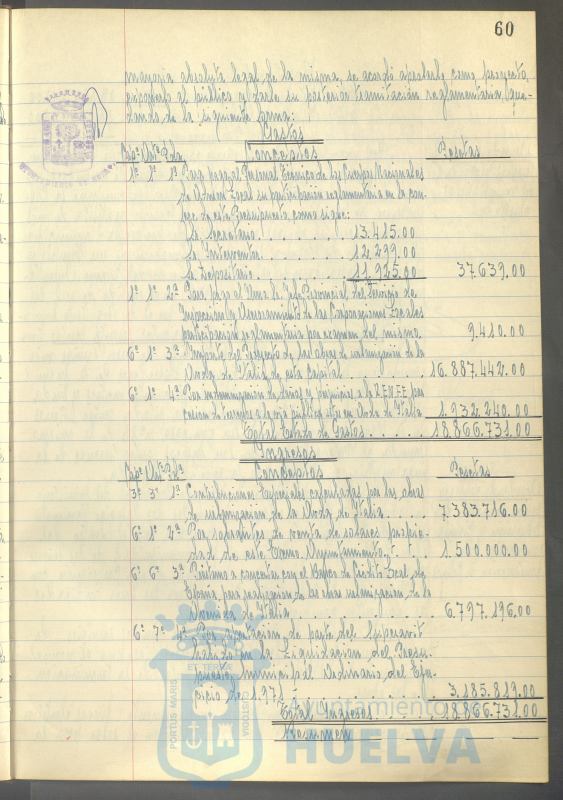 60
mayoría absoluta legal de la misma, se acordó aprobarlo como proyecto,
exponerlo al público y darle su posterior tramitación reglamentaria, que-
dando de la siguiente forma:
Gastos
Capº Artº Pda Conceptos Pesetas
1º 1º 1ª Para pago al Personal Técnico de los Cuerpos Nacionales
de Admón Local su participación reglamentaria en la con-
fec. de este Presupuesto como sigue:
Sr. Secretario . . . . . . . 13.415.00
Sr. Interventor . . . . . . 12.299.00
Sr. Depositario . . . . . . 11.925.00 37.639.00
1º 1º 2ª Para pago al Iltmo Sr. Jefe Provincial del Servicio de
Inspección y Asesoramiento de las Corporaciones Locales
participación reglamentaria por examen del mismo. 9.410.00
6º 1º 3ª Importe del Proyecto de las obras de urbanización de la
Avda de Italia de esta capital . . . . . . 16.887.442.00
6º 1º 4ª Por indemnización de daños y perjuicios a la R.E.N.F.E. por
cesión de terrenos a la vía pública sitos en Avda de Italia 1.932.240.00
Total Estado de Gastos . . . . . 18.866.731.00
Ingresos
Capº Artº Pda Conceptos Pesetas
3º 3º 1ª Contribuciones Especiales calculadas por las obras
de urbanización de la Avda de Italia . . . . 7.383.716.00
6º 1º 2ª Por sobrantes de venta de solares propie-
dad de este Excmo Ayuntamiento . . . 1.500.000.00
6º 6º 3ª Préstamo a concertar con el Banco de Crédito Local de
España, para realización de las obras urbanización de la
Avenida de Italia . . . . . . . . . . 6.797.196.00
6º 7º 4ª Por aportación de parte del Superavit
habido en la Liquidación del Presu-
puesto municipal Ordinario del Ejer-
cicio de 1971 . . . . . . . . . 3.185.819.00
Total Ingresos . . . . . . 18.866.731.00
Resumen
PORTUS MARIS
ET TERRE
CUSTODIA
Ayuntamiento
HUELVA